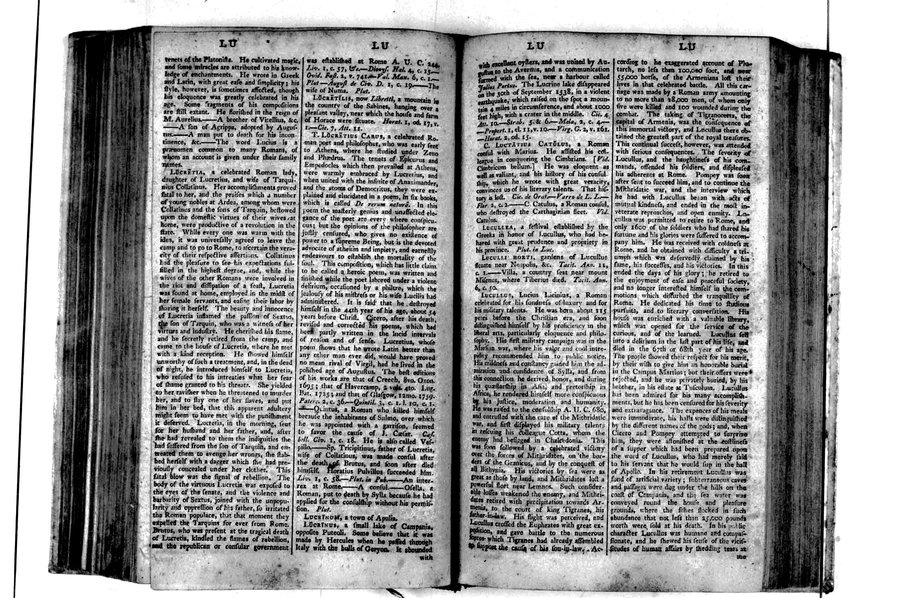 LU
tenets of the Platonists. He cultivated magic,
and some miracles are attributed to his know-
ledge of enchantments. He wrote in Greek
and Latin, with great ease and simplicity; his
style, however, is sometimes affected, though
his eloquence was greatly celebrated in his
age. Some fragments of his compositions
are still extant. He flourished in the reign of
M. Aurelius.—A brother of Vitellius, &c.
—A son of Agrippa, adopted by Augus-
tus.—A man put to death for his incon-
tinence, &c.—The word Lucius is a
prænomen common to many Romans, of
whom an account is given under their family
names.
LŪCRĒTIA, a celebrated Roman lady,
daughter of Lucretius, and wife of Tarqui-
nius Collatinus. Her accomplishments proved
fatal to her, and the praises which a number
of young nobles at Ardea, among whom were
Collatinus and the sons of Tarquin, bestowed
upon the domestic virtues of their wives at
home, were productive of a revolution in the
state. While every one was warm with the
idea, it was universally agreed to leave the
camp and to go to Rome, to ascertain the vera-
city of their respective assertions. Collatinus
had the pleasure to see his expectations ful-
filled in the highest degree, and, while the
wives of the other Romans were involved in
the riot and dissipation of a feast, Lucretia
was found at home, employed in the midst of
her female servants, and easing their labor by
sharing it herself. The beauty and innocence
of Lucretia inflamed the passion of Sextus,
the son of Tarquin, who was a witness of her
virtues and industry. He cherished his flame,
and he secretly retired from the camp, and
came to the house of Lucretia, where he met
with a kind reception. He showed himself
unworthy of such a treatment, and, in the dead
of night, he introduced himself to Lucretia,
who refused to his intreaties what her fear
of shame granted to his threats. She yielded
to her ravisher when he threatened to murder
her, and to slay one of her slaves, and put
him in her bed, that this apparent adultery
might seem to have met with the punishment
it deserved. Lucretia, in the morning, sent
for her husband and her father, and, after
she had revealed to them the indignities she
had suffered from the son of Tarquin, and en-
treated them to avenge her wrongs, she stab-
bed herself with a dagger which she had pre-
viously concealed under her clothes. This
fatal blow was the signal of rebellion. The
body of the virtuous Lucretia was exposed to
the eyes of the senate, and the violence and
barbarity of Sextus, joined with the unpopu-
larity and oppression of his father, so irritated
the Roman populace, that that moment they
expelled the Tarquins for ever from Rome.
Brutus, who was present at the tragical death
of Lucretia, kindled the flames of rebellion,
and the republican or consular government
LU
was established at Rome A. U. C. 244.
Liv. 1, c. 57, &c.—Dionys. Hal. 4, c. 15.—
Ovid. Fast. 2, v. 741.—Val. Max. 6, c. 1.—
Plut.—August. de Civ. D. 1, c. 19.—The
wife of Numa. Plut.
LŪCRĒTĬLIS, now Libretti, a mountain in
the country of the Sabines, hanging over a
pleasant valley, near which the house and farm
of Horace were situate. Horat. 1, od. 17, v.
1.—Cic. 7, Att. 11.
T. LŪCRĒTIUS CARUS, a celebrated Ro-
man poet and philosopher, who was early sent
to Athens, where he studied under Zeno
and Phædrus. The tenets of Epicurus and
Empedocles which then prevailed at Athens,
were warmly embraced by Lucretius, and
when united with the infinite of Anaximander,
and the atoms of Democritus, they were ex-
plained and elucidated in a poem, in six books,
which is called De rerum naturâ. In this
poem the masterly genius and unaffected ele-
gance of the poet are every where conspicu-
ous; but the opinions of the philosopher are
justly censured, who gives no existence of
power to a Supreme Being, but is the devoted
advocate of atheism and impiety, and earnestly
endeavours to establish the mortality of the
soul. This composition, which has little claim
to be called a heroic poem, was written and
finished while the poet labored under a violent
delirium, occasioned by a philtre, which the
jealousy of his mistress or his wife Lucilia had
administered. It is said that he destroyed
himself in the 44th year of his age, about 54
years before Christ. Cicero, after his death,
revised and corrected his poems, which had
been partly written in the lucid intervals
of reason and of sense. Lucretius, whose
poem shows that he wrote Latin better than
any other man ever did, would have proved
no mean rival of Virgil, had he lived in the
polished age of Augustus. The best editions
of his works are that of Creech, 8vo. Oxon.
1695; that of Havercamp, 2 vols. 4to. Lug.
Bat. 1725; and that of Glasgow, 12mo. 1759.
Paterc. 2, c. 36.—Quintil. 3, c. 1. l. 10, c. 1.
—Quintus, a Roman who killed himself
because the inhabitants of Sulmo, over which
he was appointed with a garrison, seemed
to favor the cause of J. Cæsar. Cæs.
bell. Civ. 1, c. 18. He is also called Ves-
Sp. Tricipitinus, father of Lucretia,
wife of Collatinus, was made consul after
the death of Brutus, and soon after died
himself. Horatius Pulvillus succeeded him.
Liv. 1, c. 58.—Plut. in Pub.—An inter-
rex at Rome.—A consul.—Osella, a
Roman, put to death by Sylla because he had
applied for the consulship without his permis-
sion. Plut.
LUCRĪNUM, a town of Apulia.
LŪCRĪNUS, a small lake of Campania,
opposite Puteoli. Some believe that it was
made by Hercules when he passed through
Italy with the bulls of Geryon. It abounded
with
LU
with excellent oysters, and was united by Au-
gustus to the Avernus, and a communication
formed with the sea, near a harbour called
Julius Portus. The Lucrine lake disappeared
on the 30th of September 1538, in a violent
earthquake, which raised on the spot a moun-
tain 4 miles in circumference, and about 1000
feet high, with a crater in the middle. Cic. 4,
Att. 10.—Strab. 5 & 6.—Mela, 2, c. 4.
—Propert. 1, el. 11, v. 10.—Virg. G. 2, v. 161.
—Horat. 2, od. 15.
C. LUCTĀTIUS CATŬLUS, a Roman
consul with Marius. He assisted his col-
league in conquering the Cimbrians. [Vid.
Cimbricum bellum.] He was eloquent as
well as valiant, and his history of his consul-
ship, which he wrote with great veracity,
convinces us of his literary talents. That his-
tory is lost. Cic. de Orat.—Varro de L. L.—
Flor. 2, c. 2.—C. Catulus, a Roman consul,
who destroyed the Carthaginian fleet. Vid.
Catulus.
LUCULLEA, a festival established by the
Greeks in honor of Lucullus, who had be-
haved with great prudence and propriety in
his province. Plut. in Luc.
LUCULLI HORTI, gardens of Lucullus
situate near Neapolis, &c. Tacit. Ann. 11,
c. 1.—Villa, a country seat near mount
Misenus, where Tiberius died. Tacit. Ann.
6, c. 50.
LUCULLUS, Lucius Licinius, a Roman
celebrated for his fondness of luxury and for
his military talents. He was born about 115
years before the Christian era, and soon
distinguished himself by his proficiency in the
liberal arts, particularly eloquence and philo-
sophy. His first military campaign was in the
Marsian war, where his valor and cool intre-
pidity recommended him to public notice.
His mildness and constancy gained him the ad-
miration and confidence of Sylla, and from
this connection he derived honor, and during
his quæstorship in Asia, and prætorship in
Africa, he rendered himself more conspicuous
by his justice, moderation, and humanity.
He was raised to the consulship A. U. C. 680,
and entrusted with the care of the Mithridatic
war, and first displayed his military talents
in rescuing his colleague Cotta, whom the
enemy had besieged in Chalcedonia. This
was soon followed by a celebrated victory
over the forces of Mithridates, on the bor-
ders of the Granicus, and by the conquest of
all Bithynia. His victories by sea were as
great as those by land, and Mithridates lost a
powerful fleet near Lemnos. Such consider-
able losses weakened the enemy, and Mithri-
dates retired with precipitation towards Ar-
menia, to the court of king Tigranes, his
father-in-law. His flight was perceived, and
Lucullus crossed the Euphrates with great ex-
pedition, and gave battle to the numerous
forces which Tigranes had already assembled
to support the cause of his son-in-law. Ac-
LU
cording to the exaggerated account of Plu-
tarch, no less than 100,000 foot, and near
55,000 horse, of the Armenians lost their
lives in that celebrated battle. All this car-
nage was made by a Roman army amounting
to no more than 18,000 men, of whom only
five were killed and 100 wounded during the
combat. The taking of Tigranocerta, the
capital of Armenia, was the consequence of
this immortal victory, and Lucullus there ob-
tained the greatest part of the royal treasures.
This continual success, however, was attended
with serious consequences. The severity of
Lucullus, and the haughtiness of his com-
mands, offended his soldiers, and displeased
his adherents at Rome. Pompey was soon
after sent to succeed him, and to continue the
Mithridatic war, and the interview which
he had with Lucullus began with acts of
mutual kindness, and ended in the most in-
veterate reproaches, and open enmity. Lu-
cullus was permitted to retire to Rome, and
only 1600 of the soldiers who had shared his
fortune and his glories were suffered to accom-
pany him. He was received with coldness at
Rome, and he obtained with difficulty a tri-
umph which was deservedly claimed by his
fame, his successes, and his victories. In this
ended the days of his glory; he retired to
the enjoyment of ease and peaceful society,
and no longer interested himself in the com-
motions which disturbed the tranquillity of
Rome. He dedicated his time to studious
pursuits, and to literary conversation. His
house was enriched with a valuable library,
which was opened for the service of the
curious, and of the learned. Lucullus fell
into a delirium in the last part of his life, and
died in the 67th or 68th year of his age.
The people showed their respect for his merit,
by their wish to give him an honorable burial
in the Campus Martius; but their offers were
rejected, and he was privately buried, by his
brother, in his estate at Tusculum. Lucullus
has been admired for his many accomplish-
ments, but he has been censured for his severity
and extravagance. The expences of his meals
were immoderate, his halls were distinguished
by the different names of the gods; and, when
Cicero and Pompey attempted to surprise
him, they were astonished at the costliness
of a supper which had been prepared upon
the word of Lucullus, who had merely said
to his servant that he would sup in the hall
of Apollo. In his retirement Lucullus was
fond of artificial variety; subterraneous caves
and passages were dug under the hills on the
coast of Campania, and the sea water was
conveyed round the house and pleasure
grounds, where the fishes flocked in such
abundance that not less than 25,000 pounds
worth were sold at his death. In his public
character Lucullus was humane and compas-
sionate, and he showed his sense of the vicis-
situdes of human affairs by shedding tears at
the